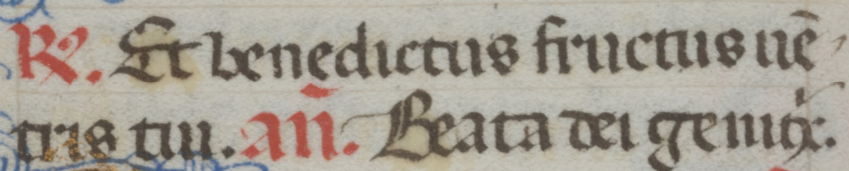 ℟. Et benedictus fructus uē
tris tui. añ. Beata dei genitͥx.